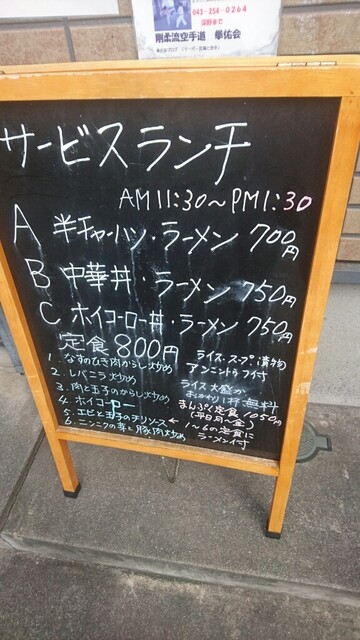 043-254-0264
剛柔流空手道 拳佑会
サービスランチ
AM11:30〜PM1:30
A 半チャーハン・ラーメン 700円
B 中華丼・ラーメン 750円
C ホイコーロー丼・ラーメン 750円
定食800円
ライス・スープ・漬物
アンニントウフ付
1. なすのひき肉からし炒め
2. レバニラ炒め
3. 肉と玉子のからし炒め
4. ホイコーロー
5. エビと玉子のチリソース
6. ニンニクの芽と豚肉炒め
ライス大盛か
おかわり1杯無料
まんぷく定食1050円
(平日月〜金)
1〜6の定食に
ラーメン付